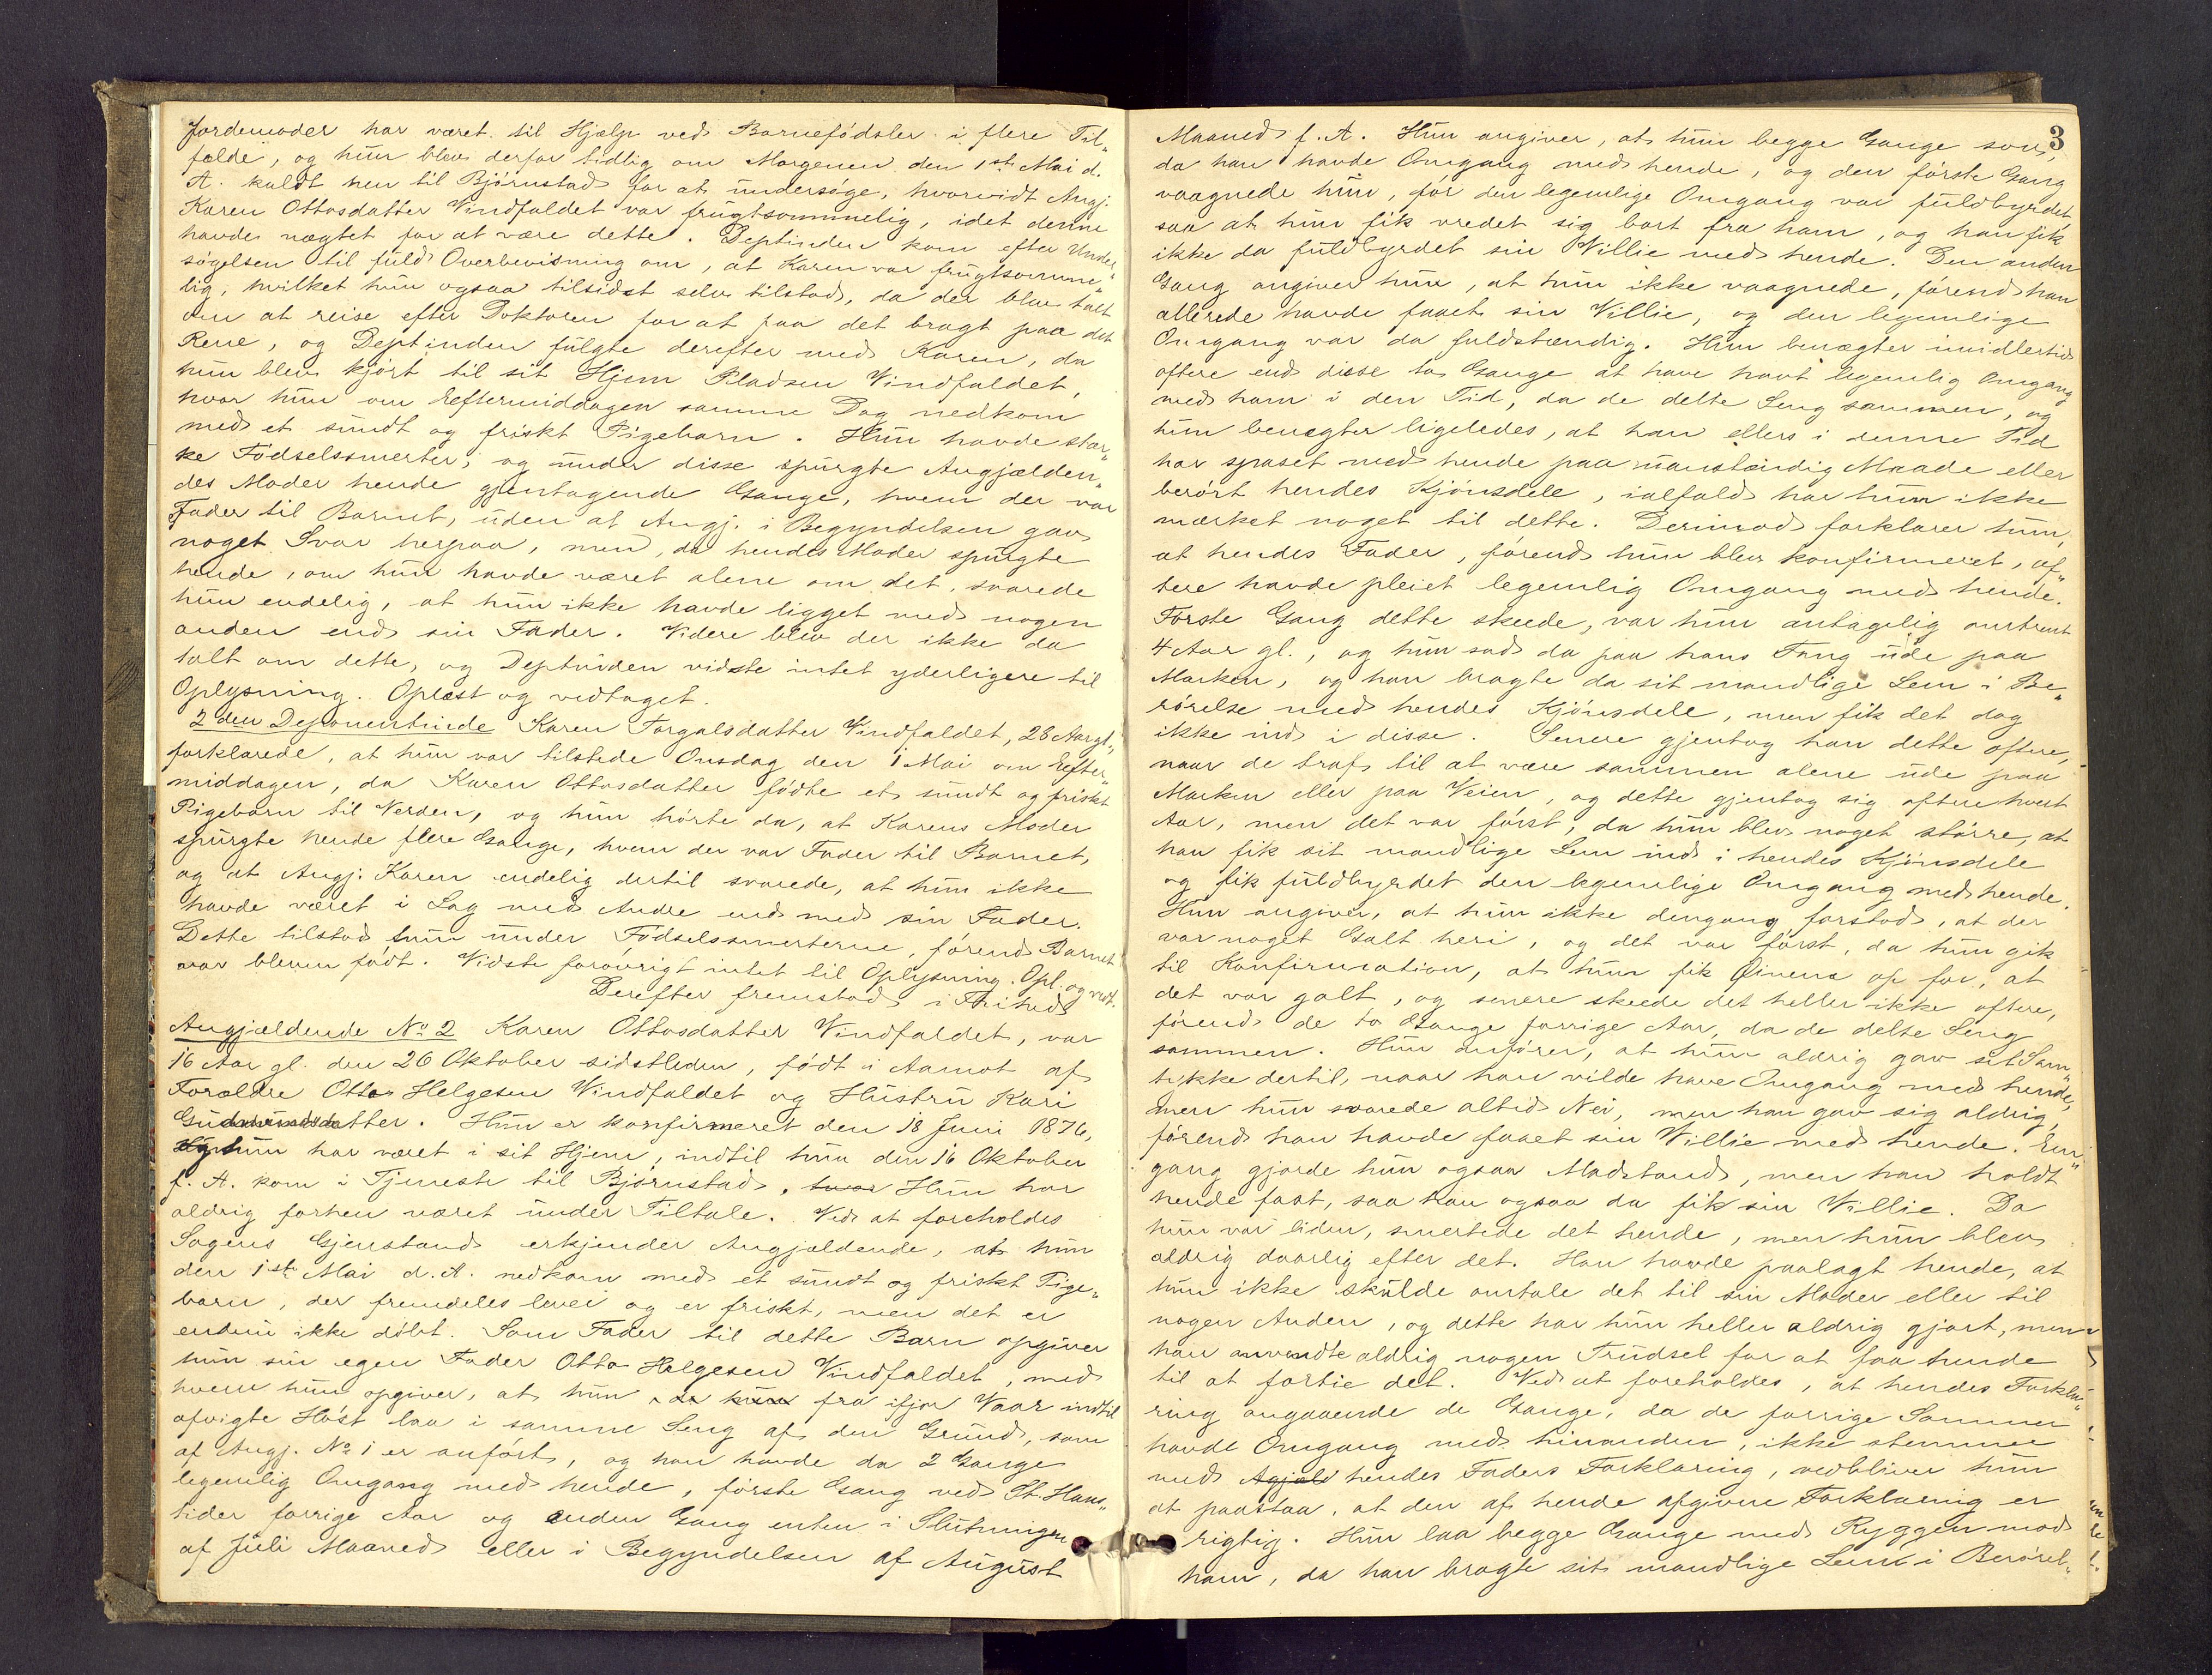 Jordemoder har været til Hjælp ved Barnefødsler i flere Til„
fælde, og hun blev derfor tidlig om Morgenen den 1ste Mai d.
A. kaldt hen til Bjørnstad for at undersøge, hvorvidt Angj.
Karen Ottosdatter Vindfaldet var frugtsommelig, idet denne
havde nægtet for at være dette. Deptinden kom efter Under„
søgelsen til fuld Overbevisning om, at Karen var frugtsomme„
lig, hvilket hun ogsaa tilsidst selv tilstod, da der blev talt
om at reise efter Doktoren for at faa det bragt paa det
Rene, og Deptinden fulgte derefter med Karen, da
hun blev kjørt til sit Hjem Pladsen Vindfaldet,
hvor hun om Eftermiddagen samme Dag nedkom
med et sundt og friskt Pigebarn. Hun havde stær„
ke Fødselssmerter, og under disse spurgte Angjælden„
des Moder hende gjentagende Gange, hvem der var
Fader til Barnet, uden at Angj. i Begyndelsen gav
noget Svar herpaa, men, da hendes Moder spurgte
hende, om hun havde været alene om det, svarede
hun endelig, at hun ikke havde ligget med nogen
anden end sin Fader. Videre blev der ikke da
talt om dette, og Deptinden vidste intet yderligere til
Oplysning. Oplæst og vedtaget.
2den Deponentinde Karen Torgalsdatter Vindfaldet, 28 Aar gl.,
forklarede, at hun var tilstede Onsdag den 1 Mai om Efter„
middagen, da Karen Ottosdatter fødte et sundt og friskt
Pigebarn til Verden, og hun hørte da, at Karens Moder
spurgte hende flere Gange, hvem der var Fader til Barnet,
og at Angj. Karen endelig dertil svarede, at hun ikke
havde været i Lag med Andre end med sin Fader.
Dette tilstod hun under Fødselssmerterne, førend Barnet
var bleven født. Vidste forøvrigt intet til Oplysning. Opl. og vedt.
Derefter fremstod i Frihed
Angjældende No 2 Karen Ottosdatter Vindfaldet, var
16 Aar gl. den 26 Oktober sidstleden, født i Aamot af
Forældre Otto Helgesen Vindfaldet og Hustru Kari
Gudmundsdatter. Hun er konfirmeret den 18 Juni 1876,
og hun har været i sit Hjem, indtil hun den 16 Oktober
f. A. kom i Tjeneste til Bjørnstad, hvor Hun har
aldrig forhen været under Tiltale. Ved at foreholdes
Sagens Gjenstand erkjender Angjældende, at hun
den 1ste Mai d. A. nedkom med et sundt og friskt Pige„
barn, der fremdeles lever og er friskt, men det er
endnu ikke døbt. Som Fader til dette Barn opgiver
hun sin egen Fader Otto Helgesen Vindfaldet, med
hvem hun opgiver, at hun fra ifjor Vaar indtil
afvigte Høst laa i samme Seng af den Grund, som
af Angj. No 1 er anført, og han havde da 2 Gange
legemlig Omgang med hende, første Gang ved St. Hans„
tider forrige Aar og anden Gang enten i Slutningen
af Juli Maaned eller i Begyndelsen af August
3
Maaned f. A. Hun angiver, at hun begge Gange sov,
da han havde Omgang med hende, og den første Gang
vaagnede hun, før den legemlige Omgang var fuldbyrdet,
saa at hun fik vredet sig bort fra ham, og han fik
ikke da fuldbyrdet sin Villie med hende. Den anden
Gang angiver hun, at hun ikke vaagnede, førend han
allerede havde faaet sin Villie, og den legemlige
Omgang var da fuldstændig. Hun benægter imidlertid
oftere end disse to Gange at have havt legemlig Omgang
med ham i den Tid, da de delte Seng sammen, og
hun benægter ligeledes, at han ellers i denne Tid
har spaset med hende paa uanstændig Maade eller
berørt hendes Kjønsdele, ialfald har hun ikke
mærket noget til dette. Derimod forklarer hun,
at hendes Fader, førend hun blev konfirmeret, of„
tere havde pleiet legemlig Omgang med hende.
Første Gang dette skede, var hun antagelig omtrent
4 Aar gl., og hun sad da paa hans Fang ude paa
Marken, og han bragte da sit mandlige Lem i Be„
rørelse med hendes Kjønsdele, men fik det dog
ikke ind i disse. Senere gjentog han dette oftere,
naar de traf til at være sammen alene ude paa
Marken eller paa Veien, og dette gjentog sig oftere hvert
Aar, men det var først, da hun blev noget større, at
han fik sit mandlige Lem ind i hendes Kjønsdele
og fik fuldbyrdet den legemlige Omgang med hende.
Hun angiver, at hun ikke dengang forstod, at der
var noget Galt heri, og det var først, da hun gik
til Konfirmation, at hun fik Øinene op for, at
det var galt, og senere skede det heller ikke oftere,
førend de to Gange forrige Aar, da de delte Seng
sammen. Hun anfører, at hun aldrig gav sit Sam„
tykke dertil, naar han vilde have Omgang med hende,
men hun svarede altid Nei, men han gav sig aldrig,
førend han havde faaet sin Villie med hende. En„
gang gjorde hun ogsaa Modstand, men han holdt
hende fast, saa han ogsaa da fik sin Villie. Da
hun var liden, smertede det hende, men hun blev
aldrig daarlig efter det. Han havde paalagt hende, at
hun ikke skulde omtale det til sin Moder eller til
nogen Anden, og dette har hun heller aldrig gjort, men
han anvendte aldrig nogen Trudsel for at faa hende
til at fortie det. Ved at foreholdes, at hendes Forkla„
ring angaaende de Gange, da de forrige Sommer
havde Omgang med hinanden, ikke stemmer
med Agjæld hendes Faders Forklaring, vedbliver hun
at paastaa, at den af hende afgivne Forklaring er
rigtig. Hun laa begge Gange med Ryggen mod
ham, da han bragte sit mandlige Lem i Berørel„